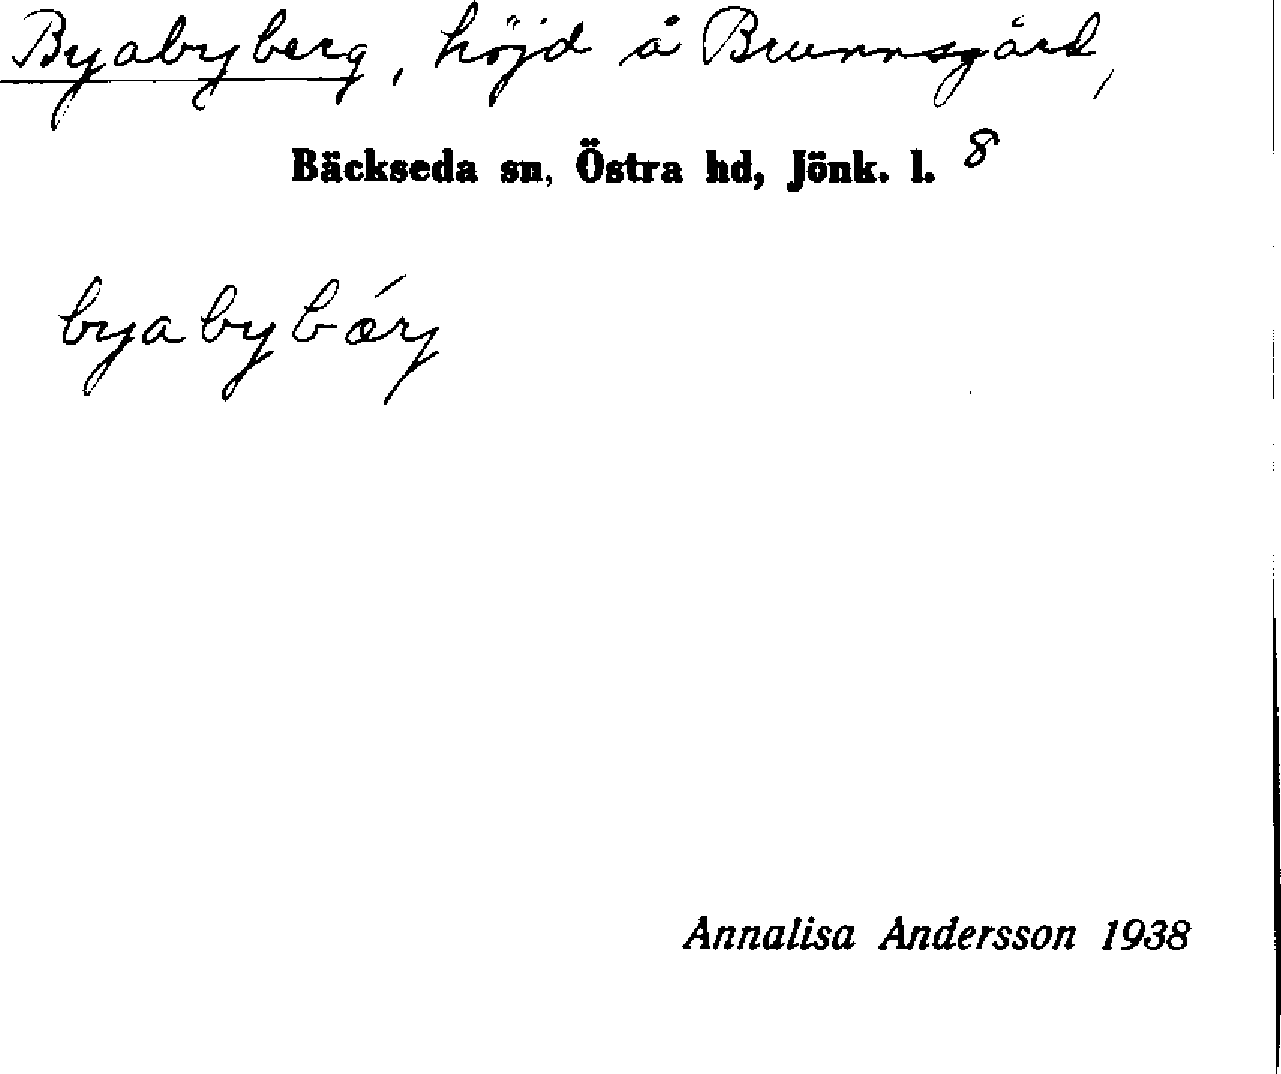 Byabyberg, höjd å Brunnsgård,
Bäckseda sn, Östra hd, Jönk. l. 8
byabybǽrj
Annalisa Andersson 1938